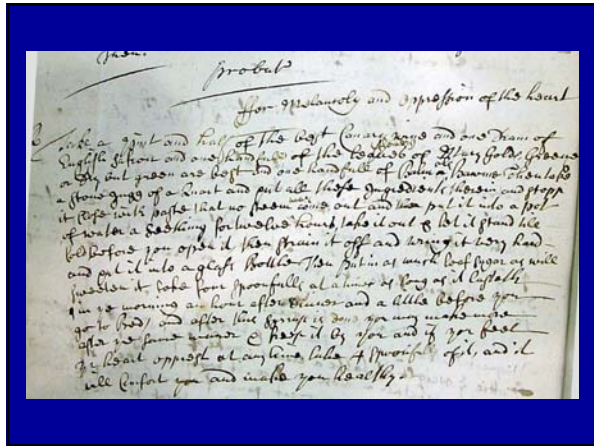 them.
probat
ffor Melancoly and oppression of the heart
Take a pint and half of the best Canary wine and one dram of
English Safron and one handfull of the leaves of Marygolds, Greene
or dry but green are best and one handfull of Balm Then take
a stone Jugg of a Quart and put all these Ingredients therein and stopp
it close with paste that no steem come out and then put it into a pot
of water a seething for twelve hours, take it out & let it stand till
cold before you open it then strain it off and wring it very hard
and put it into a glass Bottle then put in as much loaf sugar as will
sweeten it, take four spoonfulls at a time as long as it lasteth
in ye morning an hour after dinner and a little before you
go to Bed, and after this is done you may make more
after ye same maner & keep it by you and if you feel
yr heart opprest at any time take 4 spoonfuls of it, and it
will Comfort you and make you healthy.